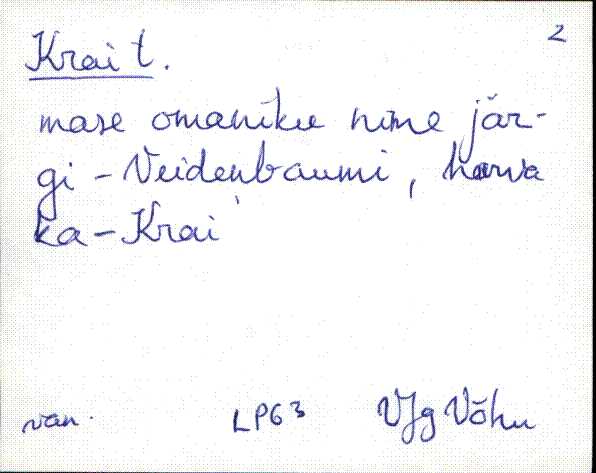 2
Krai t.
mase omaniku nime jär-
gi - Veidenbaumi, harva
ka - Krai
van. LPG3 VJg Võhu